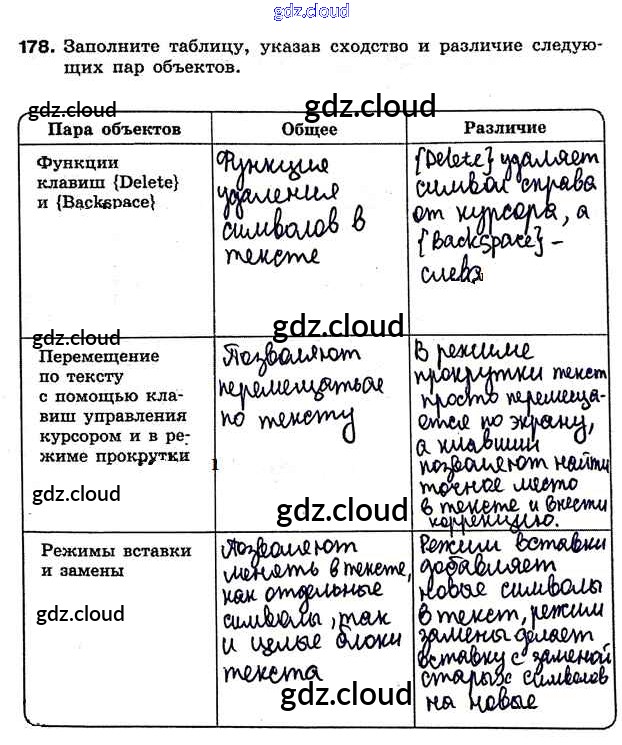 gdz.cloud
178. Заполните таблицу, указав сходство и различие следую-
щих пар объектов.
gdz.cloud
gdz.cloud
gdz.cloud
Пара объектов
Общее
Различие
Функции
клавиш {Delete}
и {Backspace}
Функция
удаления
символов в
тексте
{Delete} удаляет
символ справа
от курсора, а
{Backspace} -
слева
gdz.cloud
gdz.cloud
gdz.cloud
Перемещение
по тексту
с помощью кла-
виш управления
курсором и в ре-
жиме прокрутки
Позволяют
перемещаться
по тексту
В режиме
прокрутки текст
просто перемеща-
ется по экрану,
а клавиши
позволяют найти
точное место
в тексте и внести
коррекцию.
1
gdz.cloud
gdz.cloud
gdz.cloud
Режимы вставки
и замены
Позволяют
менять в тексте,
как отдельные
символы, так
и целые блоки
текста
Режим вставки
добавляет
новые символы
в текст, режим
замены делает
вставку с заменой
старых символов
на новые
gdz.cloud
gdz.cloud
gdz.cloud